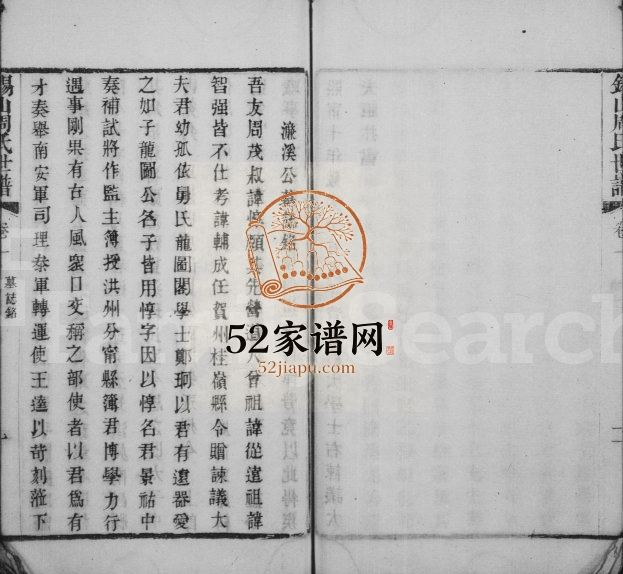 濂溪公墓誌銘
吾友周茂叔諱惇頤其先營道人曾祖諱從遠祖諱
智强皆不仕考諱輔成任賀州桂嶺縣令贈諫議大
夫君幼孤依舅氏龍圖閣學士鄭珦以君有遠器愛
之如子龍圖公名子皆用惇字因以惇名君景祐中
奏補試將作監主簿授洪州分甯縣簿君博學力行
遇事剛果有古人風衆口交稱之部使者以君爲有
才奏舉南安軍司理秦軍轉運使王逵以苛刻蒞下
錫山周氏世譜
卷一
墓誌銘
錫山周氏世譜
52家谱网
52jiapu.com